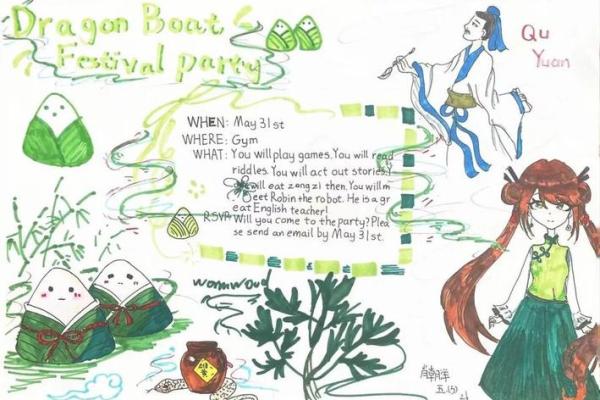 Dragon Boat
Festival party
Qu
Yuan
WHEN: May 31st
WHERE: Gym
WHAT: You will play games. You will read
riddles. You will act out stories.Y
will eat zongzi then. You will m
eet Robin the robot. He is a gr
eat English teacher!
RSVP Will you come to the party? Plea
se send an email by May 31st.
womwoud
雄黄
五.(5)